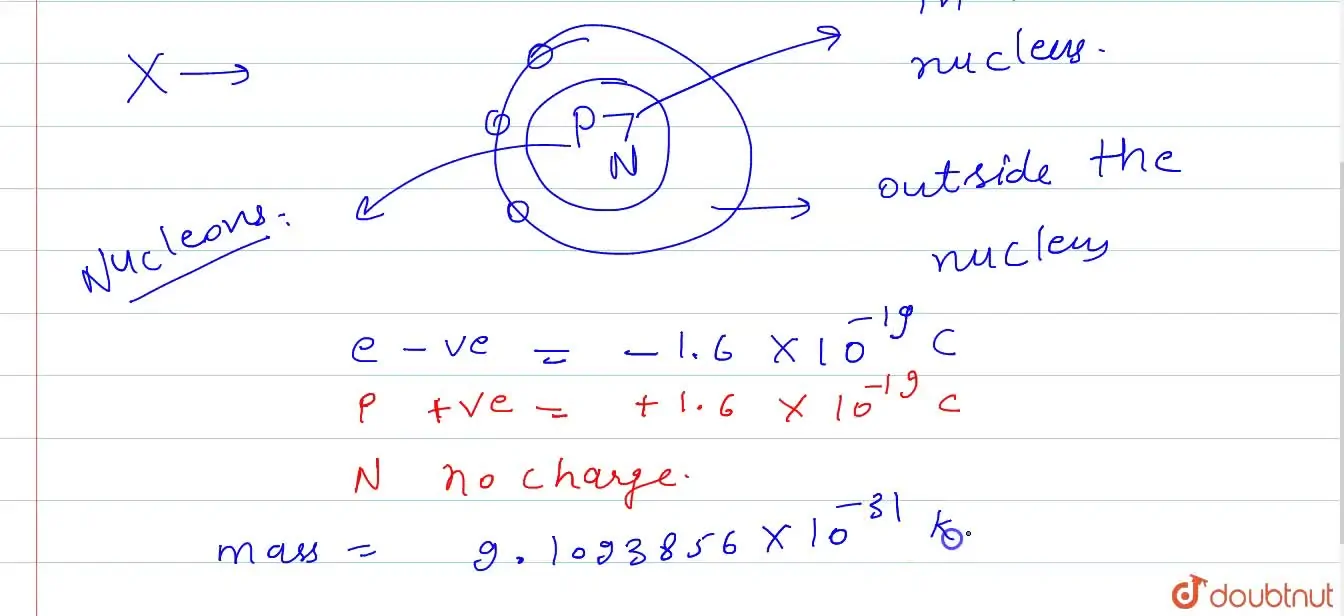 nucleus.
X →
P
N
Nucleons:
outside the
nucleus
e -ve = -1.6 × 10⁻¹⁹ C
P +ve = +1.6 × 10⁻¹⁹ C
N no charge.
mass = 9.1093856 × 10⁻³¹ k
doubtnut